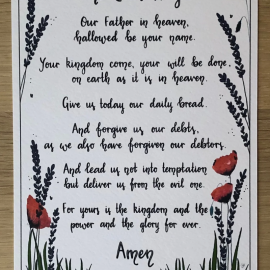 Our Father in heaven,
hallowed be your name.
Your kingdom come, your will be done,
on earth as it is in heaven.
Give us today our daily bread.
And forgive us our debts,
as we also have forgiven our debtors.
And lead us not into temptation
but deliver us from the evil one.
For yours is the kingdom and the
power and the glory for ever.
Amen